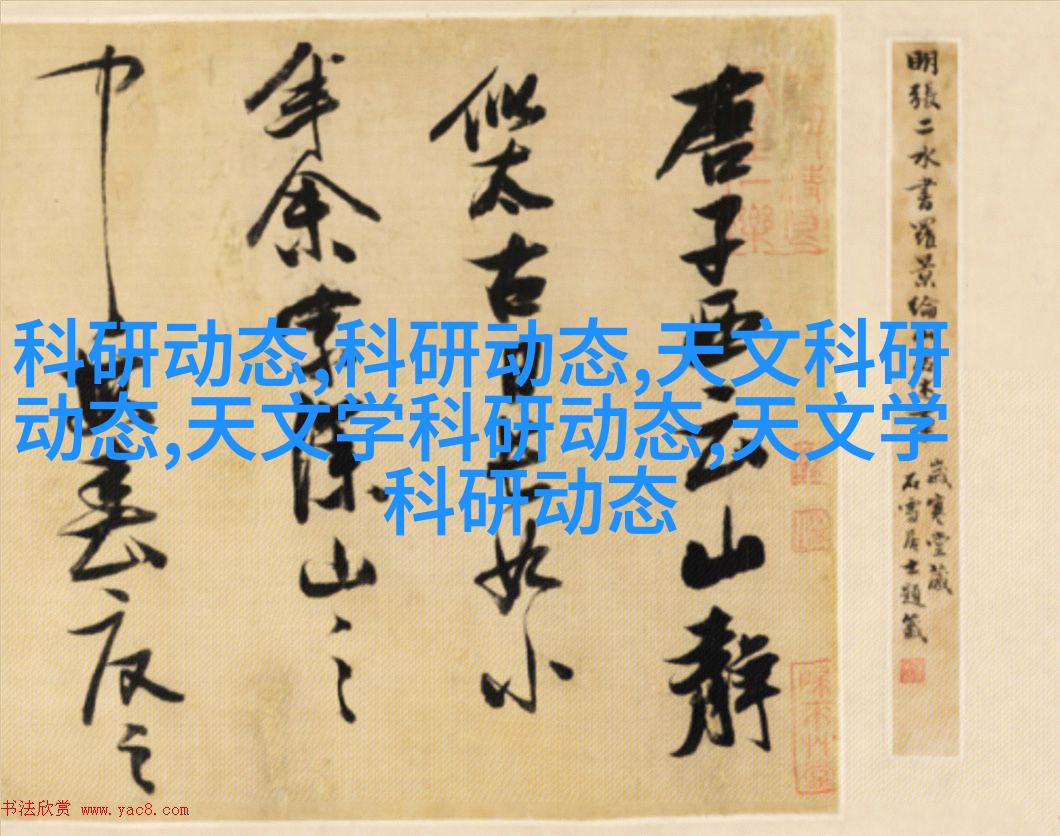 明張二水書羅景綸
歲寒堂藏
石雪居士題籤
唐子西云山靜
似太古日長如小
年余家深山之
中每春夏之
科研动态,科研动态,天文科研
动态,天文学科研动态,天文学
科研动态
书法欣赏 www.yac8.com